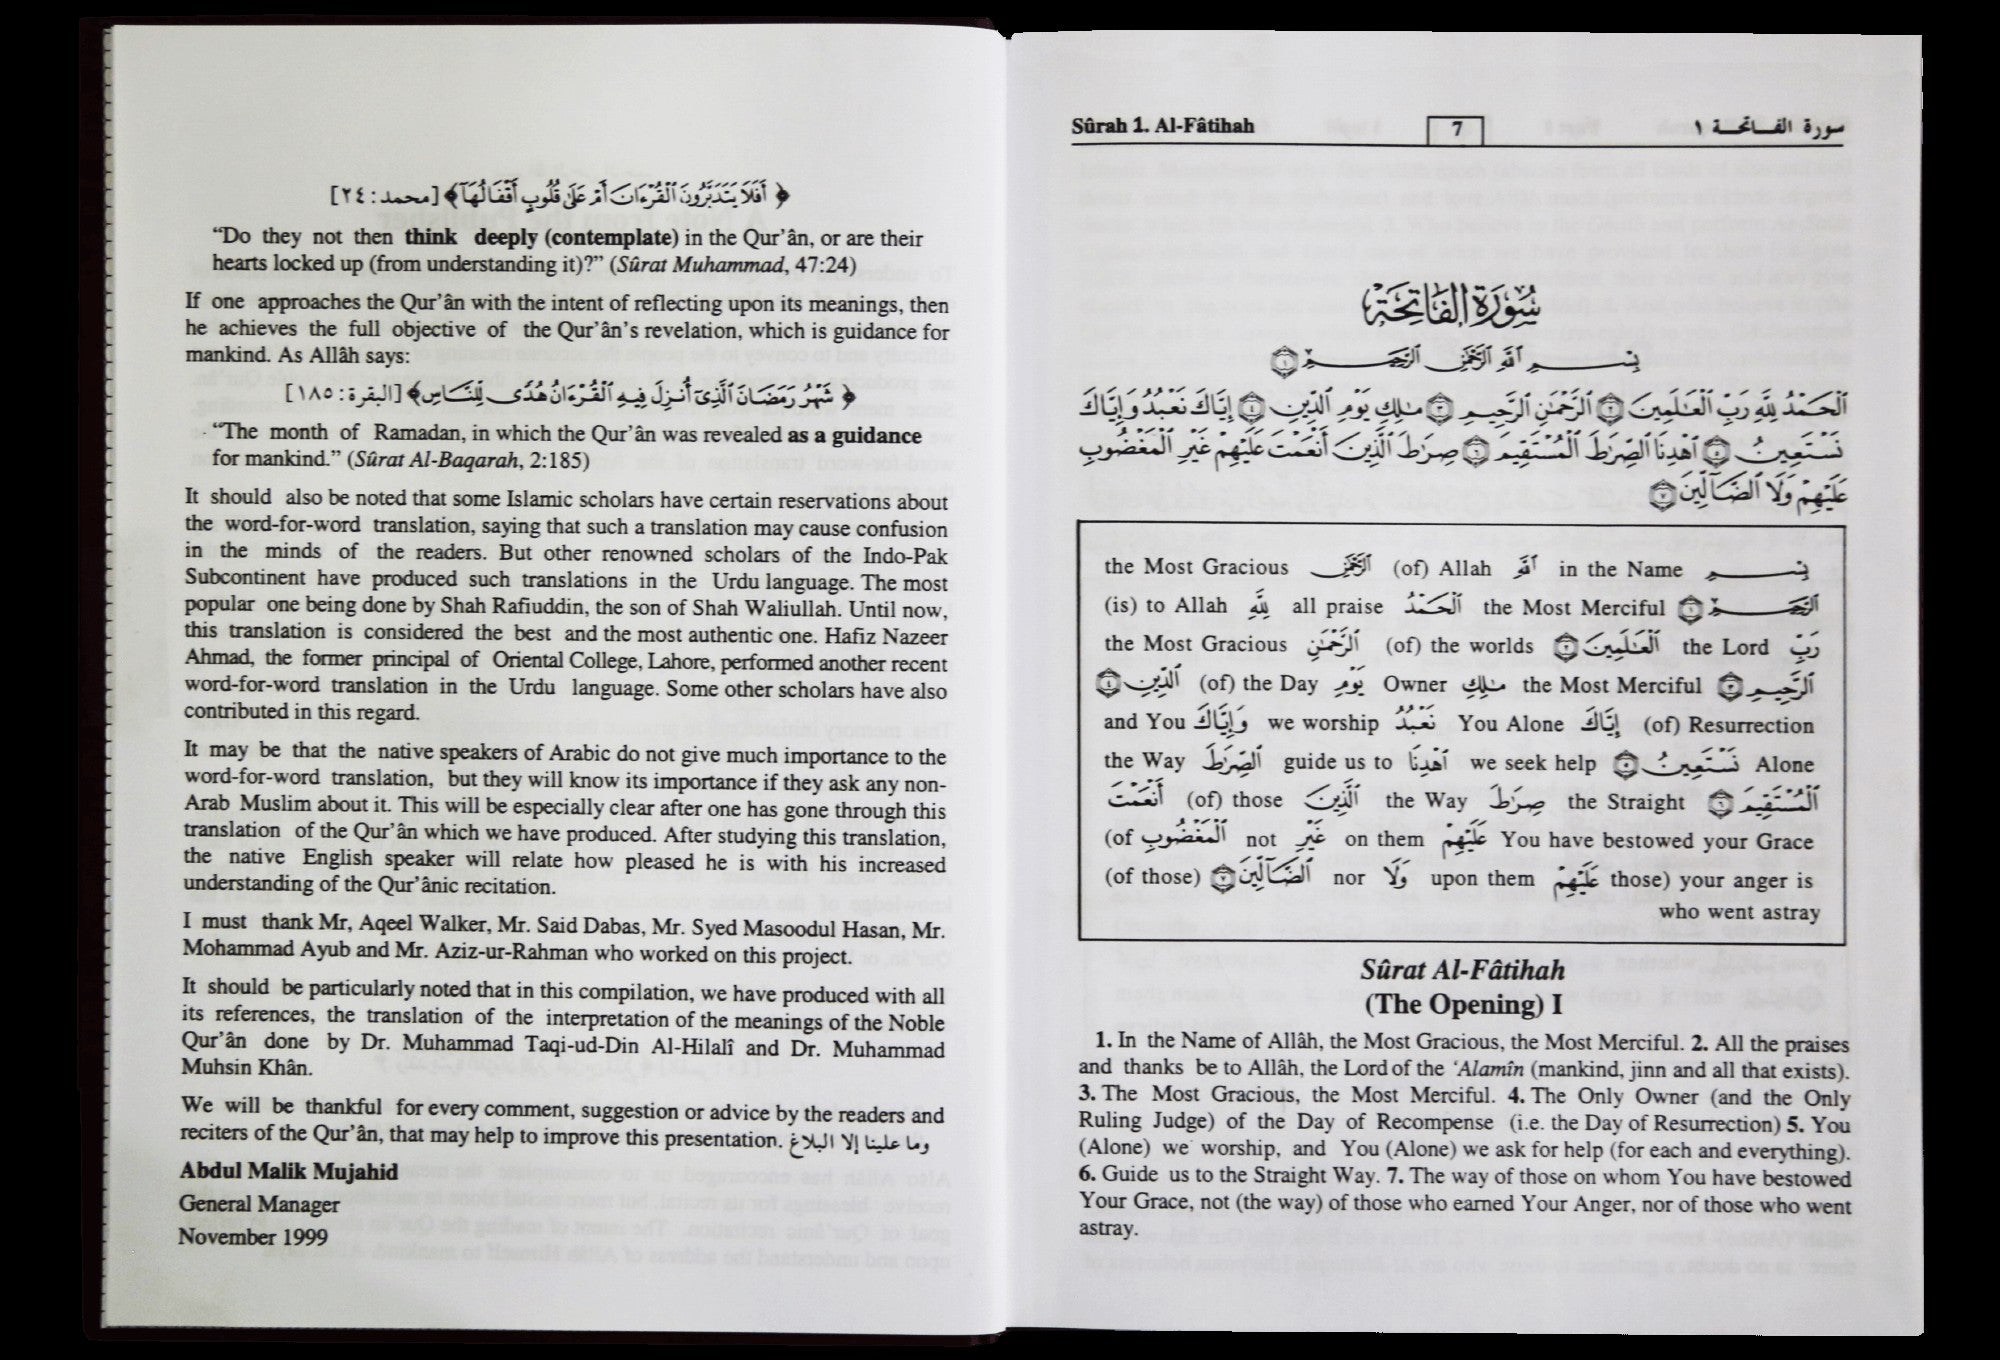 ﴿ أَفَلَا يَتَدَبَّرُونَ ٱلْقُرْءَانَ أَمْ عَلَىٰ قُلُوبٍ أَقْفَالُهَآ ﴾ [محمد: ٢٤]
“Do they not then think deeply (contemplate) in the Qur’ân, or are their
hearts locked up (from understanding it)?” (Sûrat Muhammad, 47:24)
If one approaches the Qur’ân with the intent of reflecting upon its meanings, then
he achieves the full objective of the Qur’ân’s revelation, which is guidance for
mankind. As Allâh says:
﴿ شَهْرُ رَمَضَانَ ٱلَّذِىٓ أُنزِلَ فِيهِ ٱلْقُرْءَانُ هُدًى لِّلنَّاسِ ﴾ [البقرة: ١٨٥]
“The month of Ramadan, in which the Qur’ân was revealed as a guidance
for mankind.” (Sûrat Al-Baqarah, 2:185)
It should also be noted that some Islamic scholars have certain reservations about
the word-for-word translation, saying that such a translation may cause confusion
in the minds of the readers. But other renowned scholars of the Indo-Pak
Subcontinent have produced such translations in the Urdu language. The most
popular one being done by Shah Rafiuddin, the son of Shah Waliullah. Until now,
this translation is considered the best and the most authentic one. Hafiz Nazeer
Ahmad, the former principal of Oriental College, Lahore, performed another recent
word-for-word translation in the Urdu language. Some other scholars have also
contributed in this regard.
It may be that the native speakers of Arabic do not give much importance to the
word-for-word translation, but they will know its importance if they ask any non-
Arab Muslim about it. This will be especially clear after one has gone through this
translation of the Qur’ân which we have produced. After studying this translation,
the native English speaker will relate how pleased he is with his increased
understanding of the Qur’ânic recitation.
I must thank Mr, Aqeel Walker, Mr. Said Dabas, Mr. Syed Masoodul Hasan, Mr.
Mohammad Ayub and Mr. Aziz-ur-Rahman who worked on this project.
It should be particularly noted that in this compilation, we have produced with all
its references, the translation of the interpretation of the meanings of the Noble
Qur’ân done by Dr. Muhammad Taqi-ud-Din Al-Hilalî and Dr. Muhammad
Muhsin Khân.
We will be thankful for every comment, suggestion or advice by the readers and
reciters of the Qur’ân, that may help to improve this presentation. وما علينا إلا البلاغ
Abdul Malik Mujahid
General Manager
November 1999
Sûrah 1. Al-Fâtihah 7 سورة الفاتحة ١
سُورَةُ الفَاتِحَة
بِسْمِ ٱللَّهِ ٱلرَّحْمَٰنِ ٱلرَّحِيمِ ١
ٱلْحَمْدُ لِلَّهِ رَبِّ ٱلْعَٰلَمِينَ ٢ ٱلرَّحْمَٰنِ ٱلرَّحِيمِ ٣ مَٰلِكِ يَوْمِ ٱلدِّينِ ٤ إِيَّاكَ نَعْبُدُ وَإِيَّاكَ
نَسْتَعِينُ ٥ ٱهْدِنَا ٱلصِّرَٰطَ ٱلْمُسْتَقِيمَ ٦ صِرَٰطَ ٱلَّذِينَ أَنْعَمْتَ عَلَيْهِمْ غَيْرِ ٱلْمَغْضُوبِ
عَلَيْهِمْ وَلَا ٱلضَّآلِّينَ ٧
the Most Gracious ٱلرَّحْمَٰنِ (of) Allah ٱللَّهِ in the Name بِسْمِ
(is) to Allah لِلَّهِ all praise ٱلْحَمْدُ the Most Merciful ١ ٱلرَّحِيمِ
the Most Gracious ٱلرَّحْمَٰنِ (of) the worlds ٢ ٱلْعَٰلَمِينَ the Lord رَبِّ
٤ ٱلدِّينِ (of) the Day يَوْمِ Owner مَٰلِكِ the Most Merciful ٣ ٱلرَّحِيمِ
and You وَإِيَّاكَ we worship نَعْبُدُ You Alone إِيَّاكَ (of) Resurrection
the Way ٱلصِّرَٰطَ guide us to ٱهْدِنَا we seek help ٥ نَسْتَعِينُ Alone
أَنْعَمْتَ (of) those ٱلَّذِينَ the Way صِرَٰطَ the Straight ٦ ٱلْمُسْتَقِيمَ
(of ٱلْمَغْضُوبِ not غَيْرِ on them عَلَيْهِمْ You have bestowed your Grace
(of those) ٧ ٱلضَّآلِّينَ nor وَلَا upon them عَلَيْهِمْ those) your anger is
who went astray
Sûrat Al-Fâtihah
(The Opening) I
1. In the Name of Allâh, the Most Gracious, the Most Merciful. 2. All the praises
and thanks be to Allâh, the Lord of the ‘Alamîn (mankind, jinn and all that exists).
3. The Most Gracious, the Most Merciful. 4. The Only Owner (and the Only
Ruling Judge) of the Day of Recompense (i.e. the Day of Resurrection) 5. You
(Alone) we worship, and You (Alone) we ask for help (for each and everything).
6. Guide us to the Straight Way. 7. The way of those on whom You have bestowed
Your Grace, not (the way) of those who earned Your Anger, nor of those who went
astray.